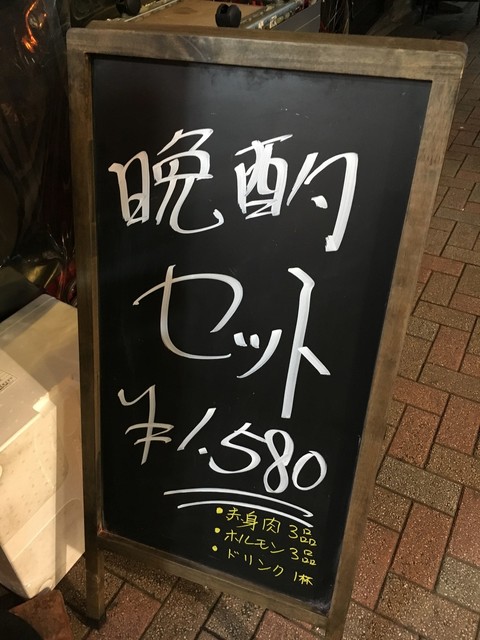 晩酌
セット
¥1.580
・赤身肉3品
・ホルモン3品
・ドリンク1杯